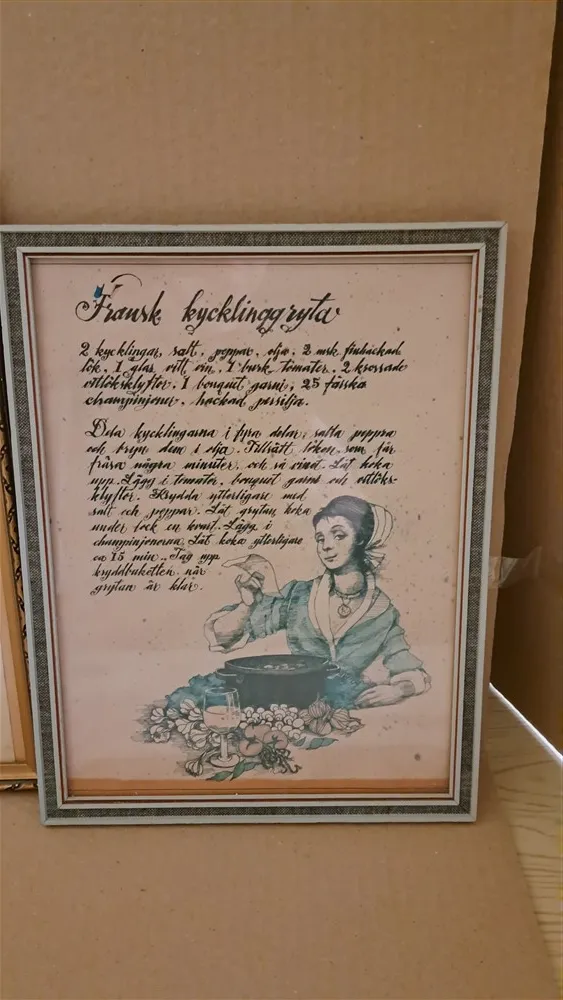 Fransk kycklinggryta
2 kycklingar, salt, peppar, olja, 2 msk finhackad
lök, 1 glas vitt vin, 1 burk tomater, 2 krossade
vitlöksklyftor, 1 bouquet garni, 25 färska
champinjoner, hackad persilja.
Dela kycklingarna i fyra delar, salta peppra
och bryn dem i olja. Tillsätt löken som får
fräsa några minuter, och så vinet. Låt koka
upp. Lägg i tomater, bouquet garni och vitlöks-
klyftor. Krydda ytterligare med
salt och peppar. Låt grytan koka
under lock en kvart. Lägg i
champinjonerna. Låt koka ytterligare
ca 15 min.. Tag upp
kryddbuketten när
grytan är klar.